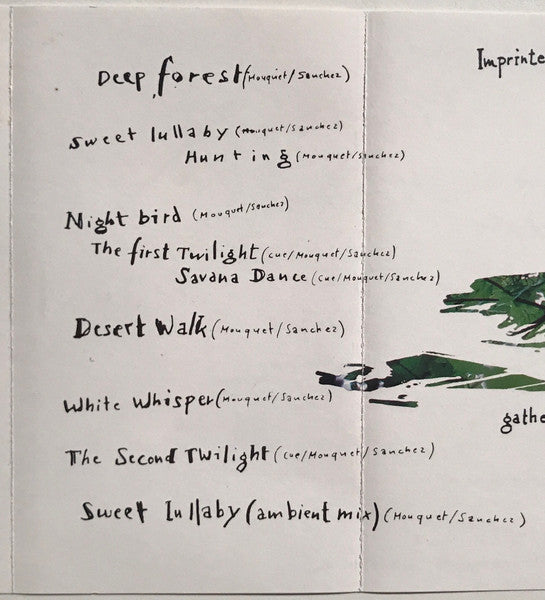 Deep forest (Mouquet/Sanchez)
Imprinte
Sweet lullaby (Mouquet/Sanchez)
Hunting (Mouquet/Sanchez)
Night bird (Mouquet/Sanchez)
The first Twilight (Cue/Mouquet/Sanchez)
Savana Dance (Cue/Mouquet/Sanchez)
Desert Walk (Mouquet/Sanchez)
White Whisper (Mouquet/Sanchez)
gathe
The Second Twilight (Cue/Mouquet/Sanchez)
Sweet lullaby (ambient mix) (Mouquet/Sanchez)